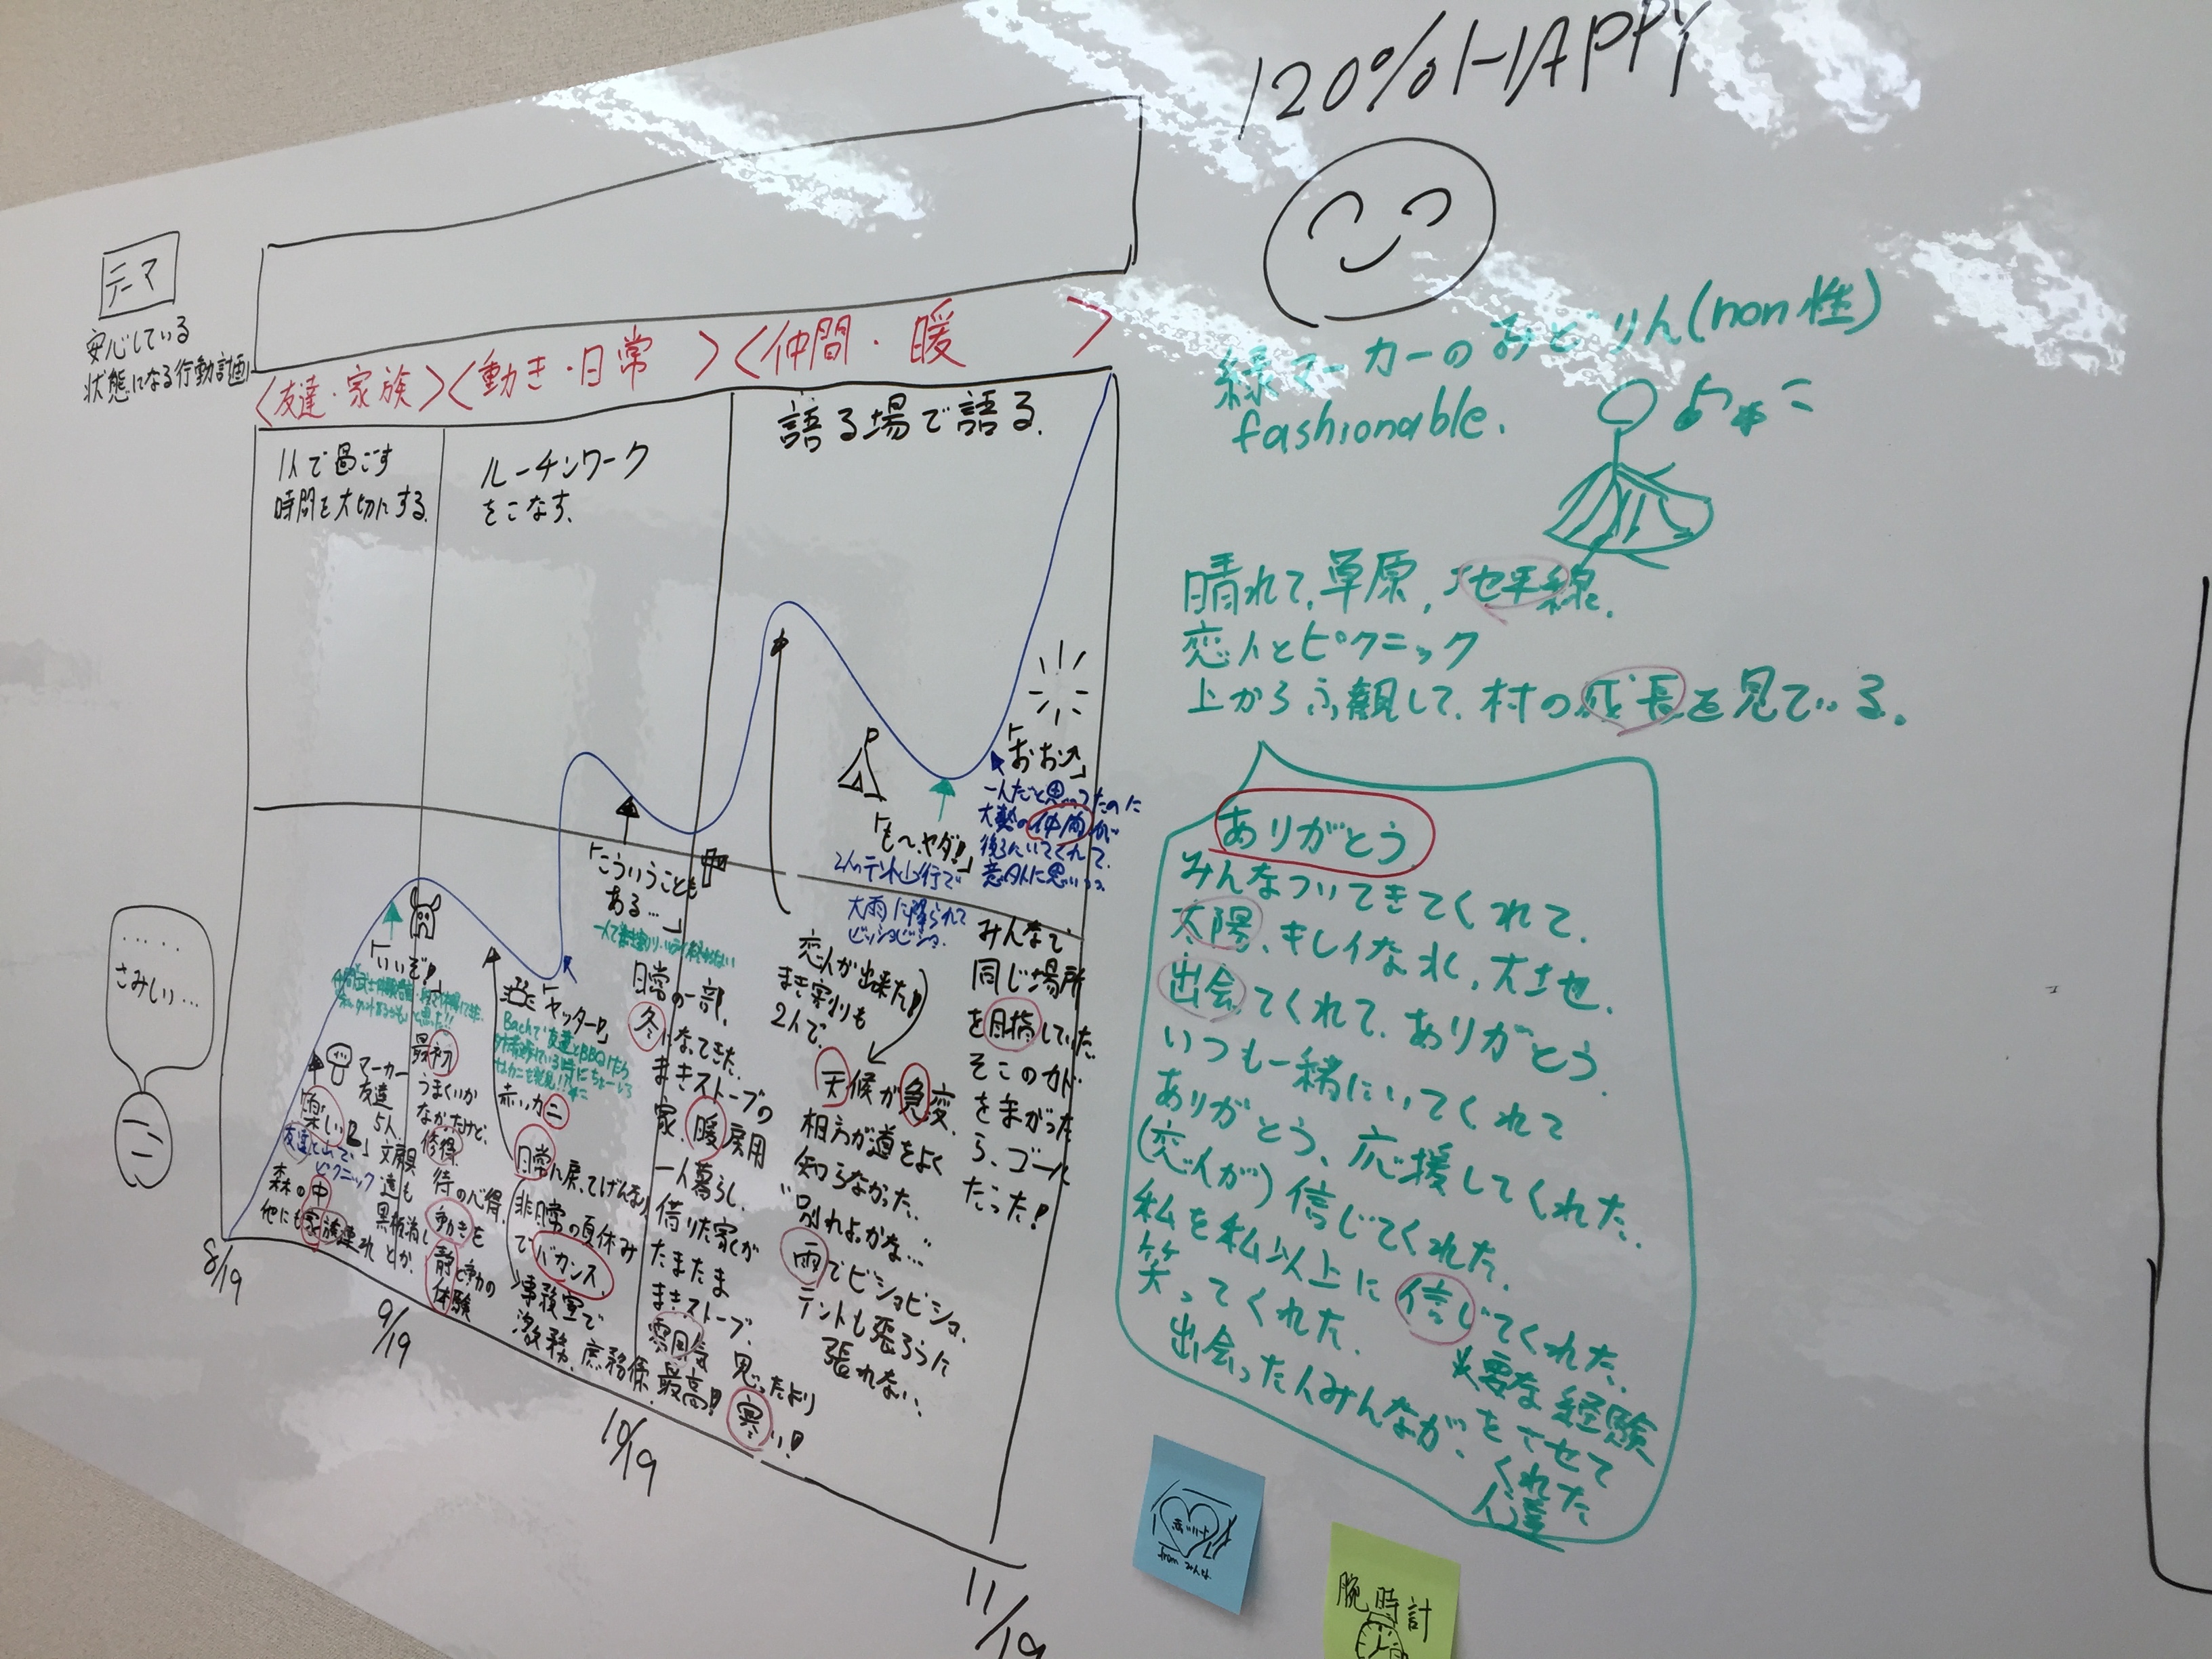 120%HAPPY
テーマ
安心している
状態になる行動計画
<友達・家族>
<動き・日常>
<仲間・暖>
1人で過ごす
時間を大切にする.
ルーチンワーク
をこなす.
語る場で語る.
緑マーカーのみどりん(non性)
fashionable.
晴れて,草原,地平線.
恋人とピクニック
上からふ観して,村の成長を見ている.
ありがとう
みんなついてきてくれて.
太陽,キレイな水,大土也.
出会てくれて.ありがとう
いつも一緒にいてくれて
ありがとう,応援してくれた.
(恋人が)信じてくれた.
私を私以上に信じてくれた.
笑ってくれた.
出会った人みんなが,
必要な経験
をさせて
くれた
人達
.....
さみしい...
「いいぞ!」
「楽しい」
友達と山で,
ピクニック
森の中
他にも家族連れ
マーカー
友達
5人.
文房具
達も
黒板消し
とか.
最初
うまくいか
なかたけど,
修得.
待の心得.
動きを
静と動の
体験
「ヤッター!」
赤いカニ
日常に戻ってげんなり
非日常の夏休み
でバカンス,
事務室で
激務.庶務係.
「こういうことも
ある...」
日常の一部.
冬になってきた.
まきストーブの
家.暖房用
一人暮らし.
借りた家が
たまたま
まきストーブ.
雰囲気
最高!!
思ったより
寒い!
恋人が出来た!!
まき割りも
2人で.
天候が急変.
相方が道をよく
知らなかった.
"別れよかな..."
雨でビショビショ.
テントも張ろうに
張れない,
「も~,ヤダ!!」
2人のテント山行で
大雨に降られて
ビッショビショ.
「おお!」
一人だと思ってたのに
大勢の仲間が
後ろにいてくれて.
意外に思いつつ
みんなで,
同じ場所
を目指していた.
そこのカド
をまがった
ら,ゴール
だった!
8/19
9/19
10/19
11/19
from みんな
腕時計